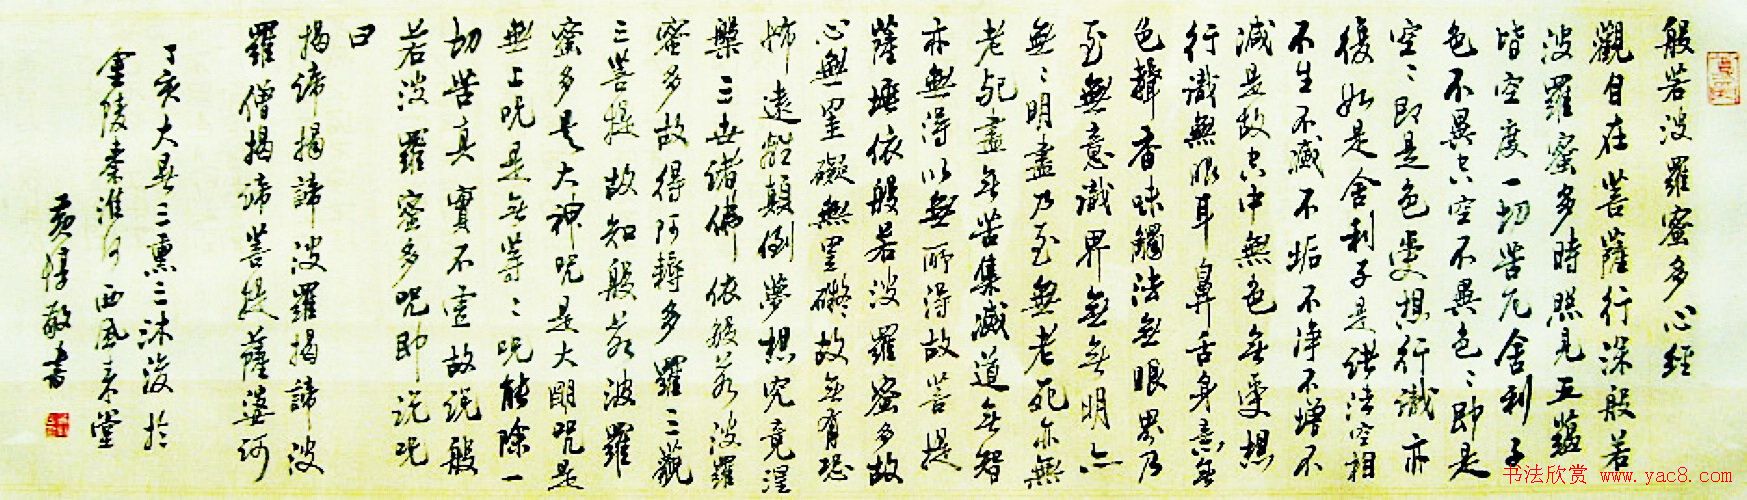 般若波羅蜜多心經
觀自在菩薩行深般若
波羅蜜多時照見五蘊
皆空度一切苦厄舍利子
色不異空空不異色〻即是
空〻即是色受想行識亦
復如是舍利子是諸法空相
不生不滅不垢不净不增不
減是故空中無色無受想
行識無眼耳鼻舌身意無
色聲香味觸法無眼界乃
至無意識界無無明亦
無〻明盡乃至無老死亦無
老死盡無苦集滅道無智
亦無得以無所得故菩提
薩埵依般若波羅蜜多故
心無罣礙無罣礙故無有恐
怖遠離顛倒夢想究竟涅
槃三世諸佛依般若波羅
蜜多故得阿耨多羅三藐
三菩提故知般若波羅
蜜多是大神呪是大明呪是
無上呪是無等〻呪能除一
切苦真實不虛故説般
若波羅蜜多呪即説呪
曰
揭諦揭諦波羅揭諦波
羅僧揭諦菩提薩婆訶
丁亥大暑三熏三沐後於
金陵秦淮河西風來堂
黄惇敬書
书法欣赏 www.yac8.com